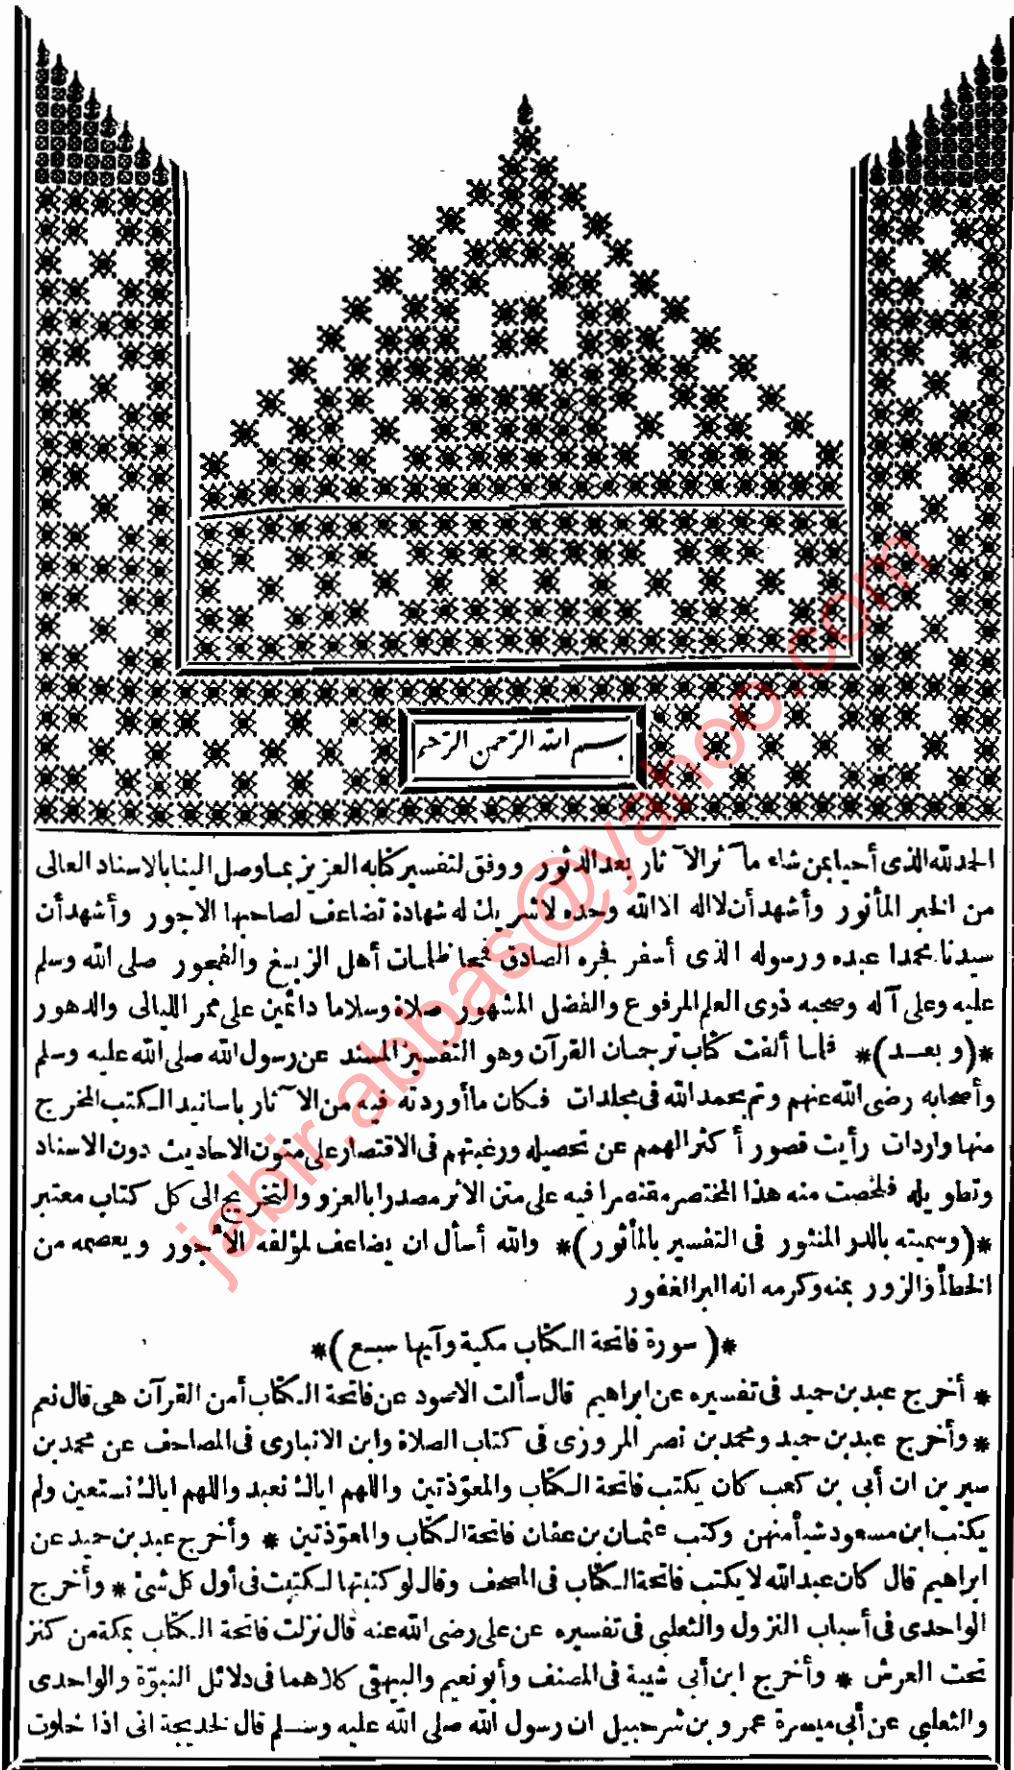 بسم الله الرحمن الرحيم
الحمد لله الذى أحيا بمن شاء مآثر الآثار بعد الدثور ووفق لتفسير كتابه العزيز بما وصل الينا بالاسناد العالى
من الخبر المأثور وأشهد أن لا اله الا الله وحده لا شريك له شهادة تضاعف لصاحبها الاجور وأشهد أن
سيدنا محمدا عبده ورسوله الذى أسفر فجره الصادق فمحا ظلمات أهل الزيغ والفجور صلى الله وسلم
عليه وعلى آله وصحبه ذوى العلم المرفوع والفضل المشهور صلاة وسلاما دائمين على ممر الليالى والدهور
*(وبعد)* فلما ألفت كتاب ترجمان القرآن وهو التفسير المسند عن رسول الله صلى الله عليه وسلم
وأصحابه رضى الله عنهم وتم بحمد الله فى مجلدات فكان ما أوردته فيه من الآثار باسانيد الكتب المخرج
منها واردات رأيت قصور أكثر الهمم عن تحصيله ورغبتهم فى الاقتصار على متون الاحاديث دون الاسناد
وتطويله فلخصت منه هذا المختصر مقتصرا فيه على متن الاثر مصدرا بالعزو والتخريج الى كل كتاب معتبر
*(وسميته بالدر المنثور فى التفسير بالمأثور)* والله أسأل ان يضاعف لمؤلفه الاجور ويعصمه من
الخطأ والزور بمنه وكرمه انه البر الغفور
*( سورة فاتحة الكتاب مكية وآيها سبع )*
* أخرج عبد بن حميد فى تفسيره عن ابراهيم قال سألت الاسود عن فاتحة الكتاب أمن القرآن هى قال نعم
* وأخرج عبد بن حميد ومحمد بن نصر المروزى فى كتاب الصلاة وابن الانبارى فى المصاحف عن محمد بن
سيرين ان أبى بن كعب كان يكتب فاتحة الكتاب والمعوّذتين واللهم اياك نعبد واللهم اياك نستعين ولم
يكتب ابن مسعود شيأ منهن وكتب عثمان بن عفان فاتحة الكتاب والمعوّذتين * وأخرج عبد بن حميد عن
ابراهيم قال كان عبد الله لا يكتب فاتحة الكتاب فى المصحف وقال لو كتبتها لكتبت فى أول كل شئ * وأخرج
الواحدى فى أسباب النزول والثعلبى فى تفسيره عن على رضى الله عنه قال نزلت فاتحة الكتاب بمكة من كنز
تحت العرش * وأخرج ابن أبى شيبة فى المصنف وأبو نعيم والبيهقى كلاهما فى دلائل النبوّة والواحدى
والثعلبى عن أبى ميسرة عمرو بن شرحبيل ان رسول الله صلى الله عليه وسلم قال لخديجة انى اذا خلوت
jabir.abbas@yahoo.com